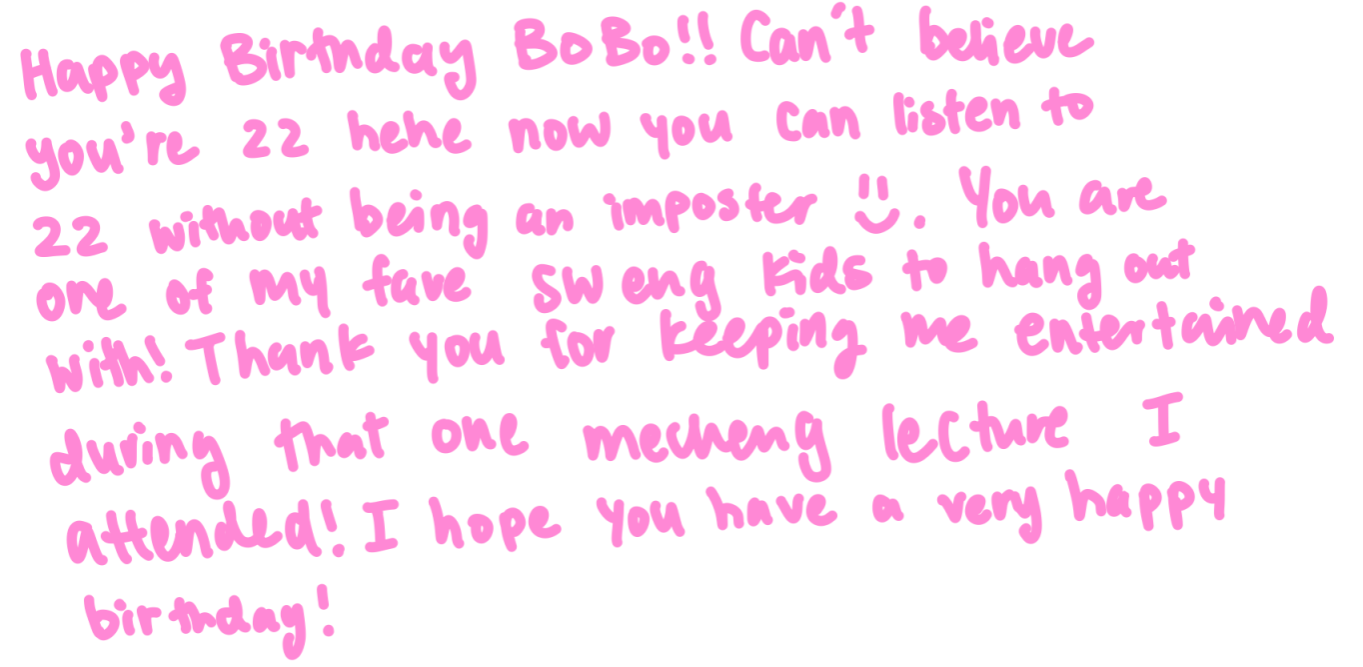 Happy Birthday BoBo!! Can't believe
you're 22 hehe now you can listen to
22 without being an imposter :). You are
one of my fave sweng kids to hang out
with! Thank you for keeping me entertained
during that one mecheng lecture I
attended! I hope you have a very happy
birthday!